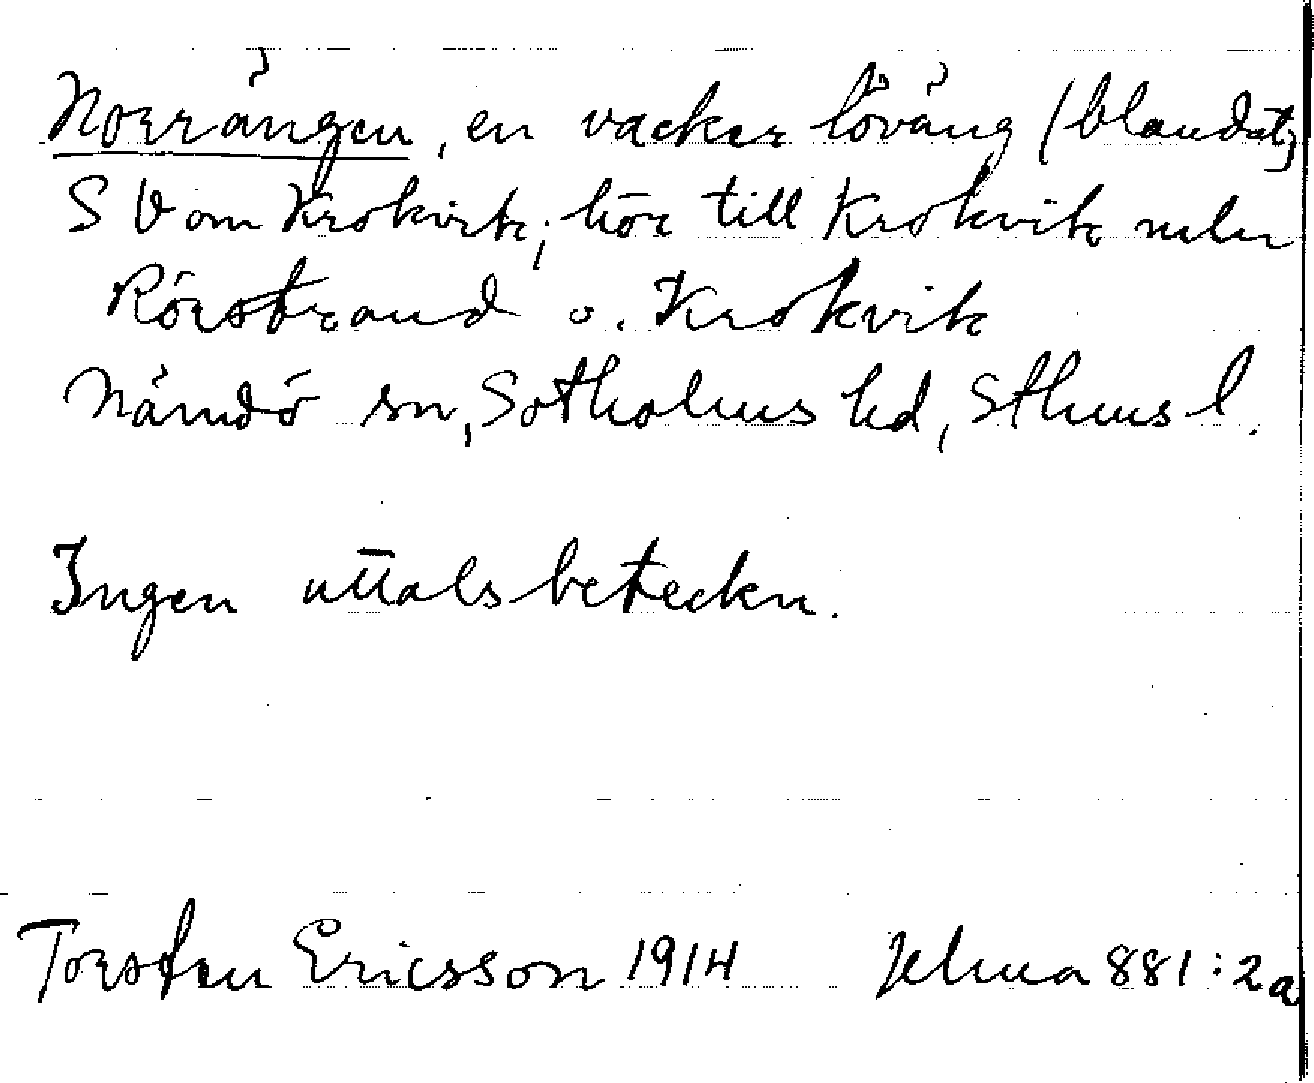 Norrängen, en vacker löväng (blandat)
S V om Krokvik; hör till Krokvik
Rörstrand o. Krokvik
Nämdö sn, Sotholms hd, Sthms l.
Ingen uttalsbeteckn.
Torsten Ericsson 1914 881:2a